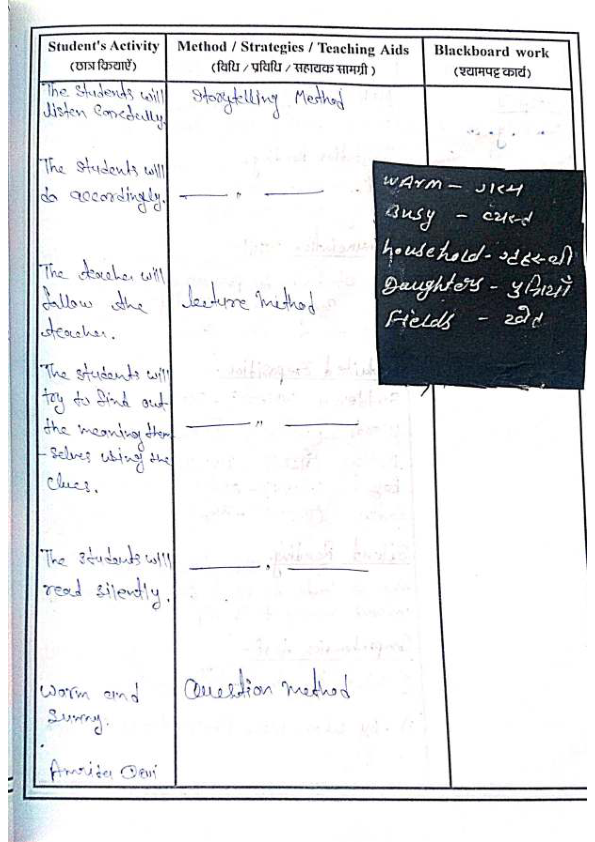 Student's Activity
(छात्र क्रियाएँ)
Method / Strategies / Teaching Aids
(विधि / प्रविधि / सहायक सामग्री )
Blackboard work
(श्यामपट्ट कार्य)
The Students will
listen carefully.
Storytelling Method
The students will
do accordingly.
— " —
WARM – गरम
Busy – व्यस्त
household - गृहस्थी
Daughters - पुत्रियाँ
Fields - खेत
The teacher will
follow the
teacher.
lecture method
The students will
try to find out
the meaning them
- selves using the
clues.
— " —
The students will
read silently.
— " —
Warm and
Sunny.
Question method
Amrita Devi